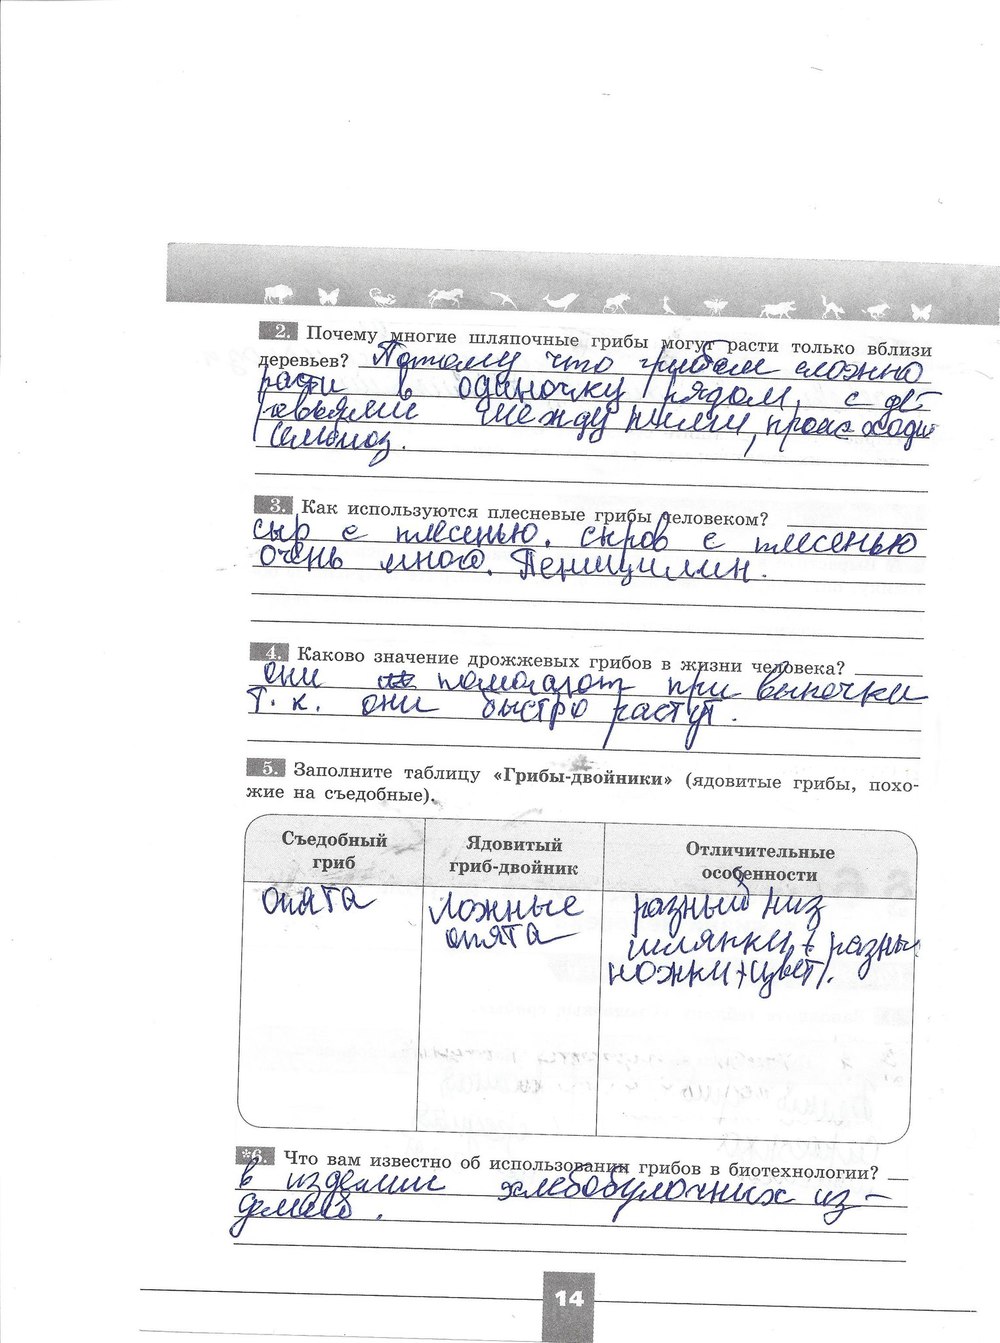 2. Почему многие шляпочные грибы могут расти только вблизи
деревьев? Потому что грибам сложно
расти в одиночку рядом с де-
ревьями между ними, происходит
симбиоз.
3. Как используются плесневые грибы человеком?
сыр с плесенью. сыров с плесенью
очень много. Пеницилин.
4. Каково значение дрожжевых грибов в жизни человека?
они помогают при выпечки
т. к. они быстро растут.
5. Заполните таблицу «Грибы-двойники» (ядовитые грибы, похо-
жие на съедобные).
Съедобный
гриб
Ядовитый
гриб-двойник
Отличительные
особенности
опята
ложные
опята
разный низ
шляпки + разные
ножки + цвет.
*6. Что вам известно об использовании грибов в биотехнологии?
в изделии хлебобулочных из-
делий.
14